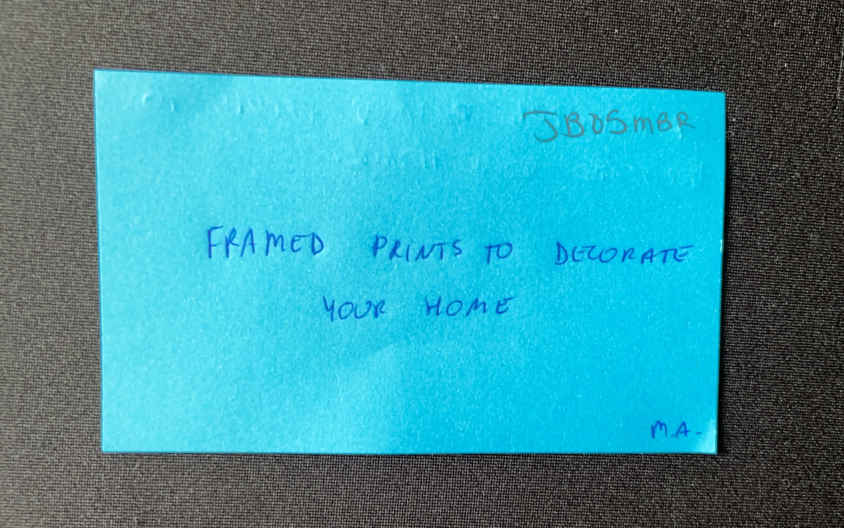 JB05mBR
FRAMED PRINTS TO DECORATE
YOUR HOME
M.A.